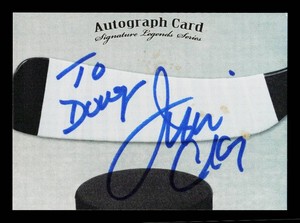 Autograph Card
Signature Legends Series
To
Doug